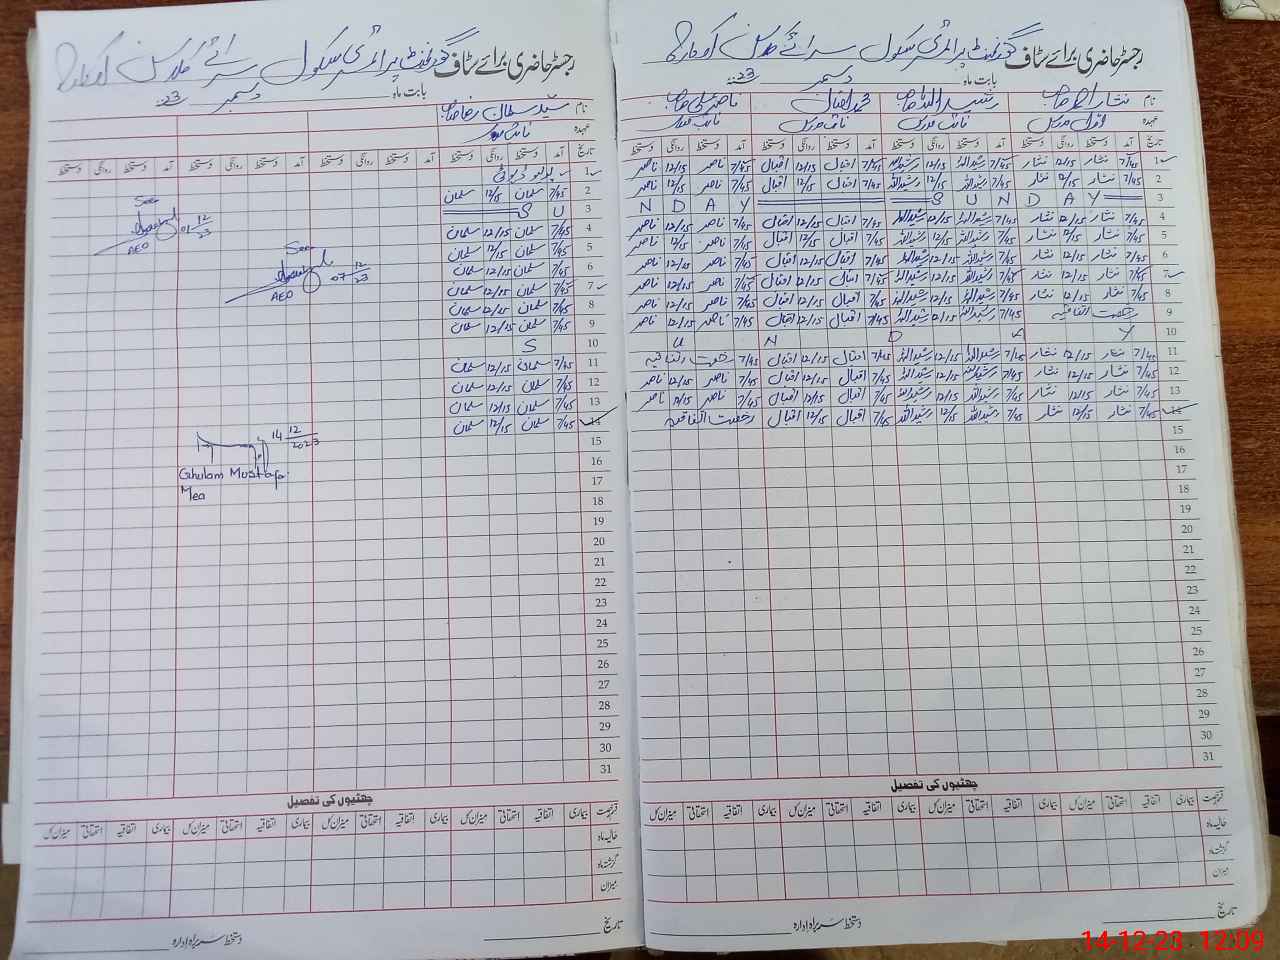 رجسٹر حاضری برائے سٹاف گورنمنٹ پرائمری سکول سرائے
بابت ماہ دسمبر 23
نام نثار احمد صاحب رشید اللہ صاحب محمد اقبال ناصر علی صاحب
عہدہ
تاریخ آمد دستخط روانگی دستخط آمد دستخط روانگی دستخط آمد دستخط روانگی دستخط آمد دستخط روانگی دستخط
1 7/45 نثار 12/15 نثار 7/45 رشید اللہ 12/15 رشید اللہ 7/45 اقبال 12/15 اقبال 7/45 ناصر 12/15 ناصر
2 7/45 نثار 12/15 نثار 7/45 رشید اللہ 12/15 رشید اللہ 7/45 اقبال 12/15 اقبال 7/45 ناصر 12/15 ناصر
3 N D A Y S U N D A Y
4 7/45 نثار 12/15 نثار 7/45 رشید اللہ 12/15 رشید اللہ 7/45 اقبال 12/15 اقبال 7/45 ناصر 12/15 ناصر
5 7/45 نثار 12/15 نثار 7/45 رشید اللہ 12/15 رشید اللہ 7/45 اقبال 12/15 اقبال 7/45 ناصر 12/15 ناصر
6 7/45 نثار 12/15 نثار 7/45 رشید اللہ 12/15 رشید اللہ 7/45 اقبال 12/15 اقبال 7/45 ناصر 12/15 ناصر
7 7/45 نثار 12/15 نثار 7/45 رشید اللہ 12/15 رشید اللہ 7/45 اقبال 12/15 اقبال 7/45 ناصر 12/15 ناصر
8 7/45 نثار 12/15 نثار 7/45 رشید اللہ 12/15 رشید اللہ 7/45 اقبال 12/15 اقبال 7/45 ناصر 12/15 ناصر
9 رخصت اتفاقیہ 7/45 رشید اللہ 12/15 رشید اللہ 7/45 اقبال 12/15 اقبال 7/45 ناصر 12/15 ناصر
10 U N D A Y
11 7/45 نثار 12/15 نثار 7/45 رشید اللہ 12/15 رشید اللہ 7/45 اقبال 12/15 اقبال 7/45 رخصت اتفاقیہ
12 7/45 نثار 12/15 نثار 7/45 رشید اللہ 12/15 رشید اللہ 7/45 اقبال 12/15 اقبال 7/45 ناصر 12/15 ناصر
13 7/45 نثار 12/15 نثار 7/45 رشید اللہ 12/15 رشید اللہ 7/45 اقبال 12/15 اقبال 7/45 ناصر 12/15 ناصر
14 7/45 نثار 12/15 نثار 7/45 رشید اللہ 12/15 رشید اللہ 7/45 اقبال 12/15 اقبال رخصت اتفاقیہ
15
16
17
18
19
20
21
22
23
24
25
26
27
28
29
30
31
چھٹیوں کی تفصیل
قسم رخصت بیماری اتفاقیہ استحقاقی میزان کل بیماری اتفاقیہ استحقاقی میزان کل بیماری اتفاقیہ استحقاقی میزان کل بیماری اتفاقیہ استحقاقی میزان کل
حالیہ ماہ
گزشتہ ماہ
میزان
تاریخ
دستخط سربراہ ادارہ
رجسٹر حاضری برائے سٹاف گورنمنٹ پرائمری سکول سرائے
بابت ماہ دسمبر 23
نام سید سلمان رضا صاحب
عہدہ
تاریخ آمد دستخط روانگی دستخط آمد دستخط روانگی دستخط آمد دستخط روانگی دستخط آمد دستخط روانگی دستخط
1 پولیو ڈیوٹی
2 7/45 سلمان 12/15 سلمان
3 S U
4 7/45 سلمان 12/15 سلمان
5 7/45 سلمان 12/15 سلمان
6 7/45 سلمان 12/15 سلمان
7 7/45 سلمان 12/15 سلمان
8 7/45 سلمان 12/15 سلمان
9 7/45 سلمان 12/15 سلمان
10 S
11 7/45 سلمان 12/15 سلمان
12 7/45 سلمان 12/15 سلمان
13 7/45 سلمان 12/15 سلمان
14 7/45 سلمان 12/15 سلمان
15
16
17
18
19
20
21
22
23
24
25
26
27
28
29
30
31
See
01 12/23
AEO
See
07 12/23
AEO
14 12/2023
Ghulam Mustafa
Mea
چھٹیوں کی تفصیل
قسم رخصت بیماری اتفاقیہ استحقاقی میزان کل بیماری اتفاقیہ استحقاقی میزان کل بیماری اتفاقیہ استحقاقی میزان کل بیماری اتفاقیہ استحقاقی میزان کل
حالیہ ماہ
گزشتہ ماہ
میزان
تاریخ
دستخط سربراہ ادارہ
14-12-23 12:09